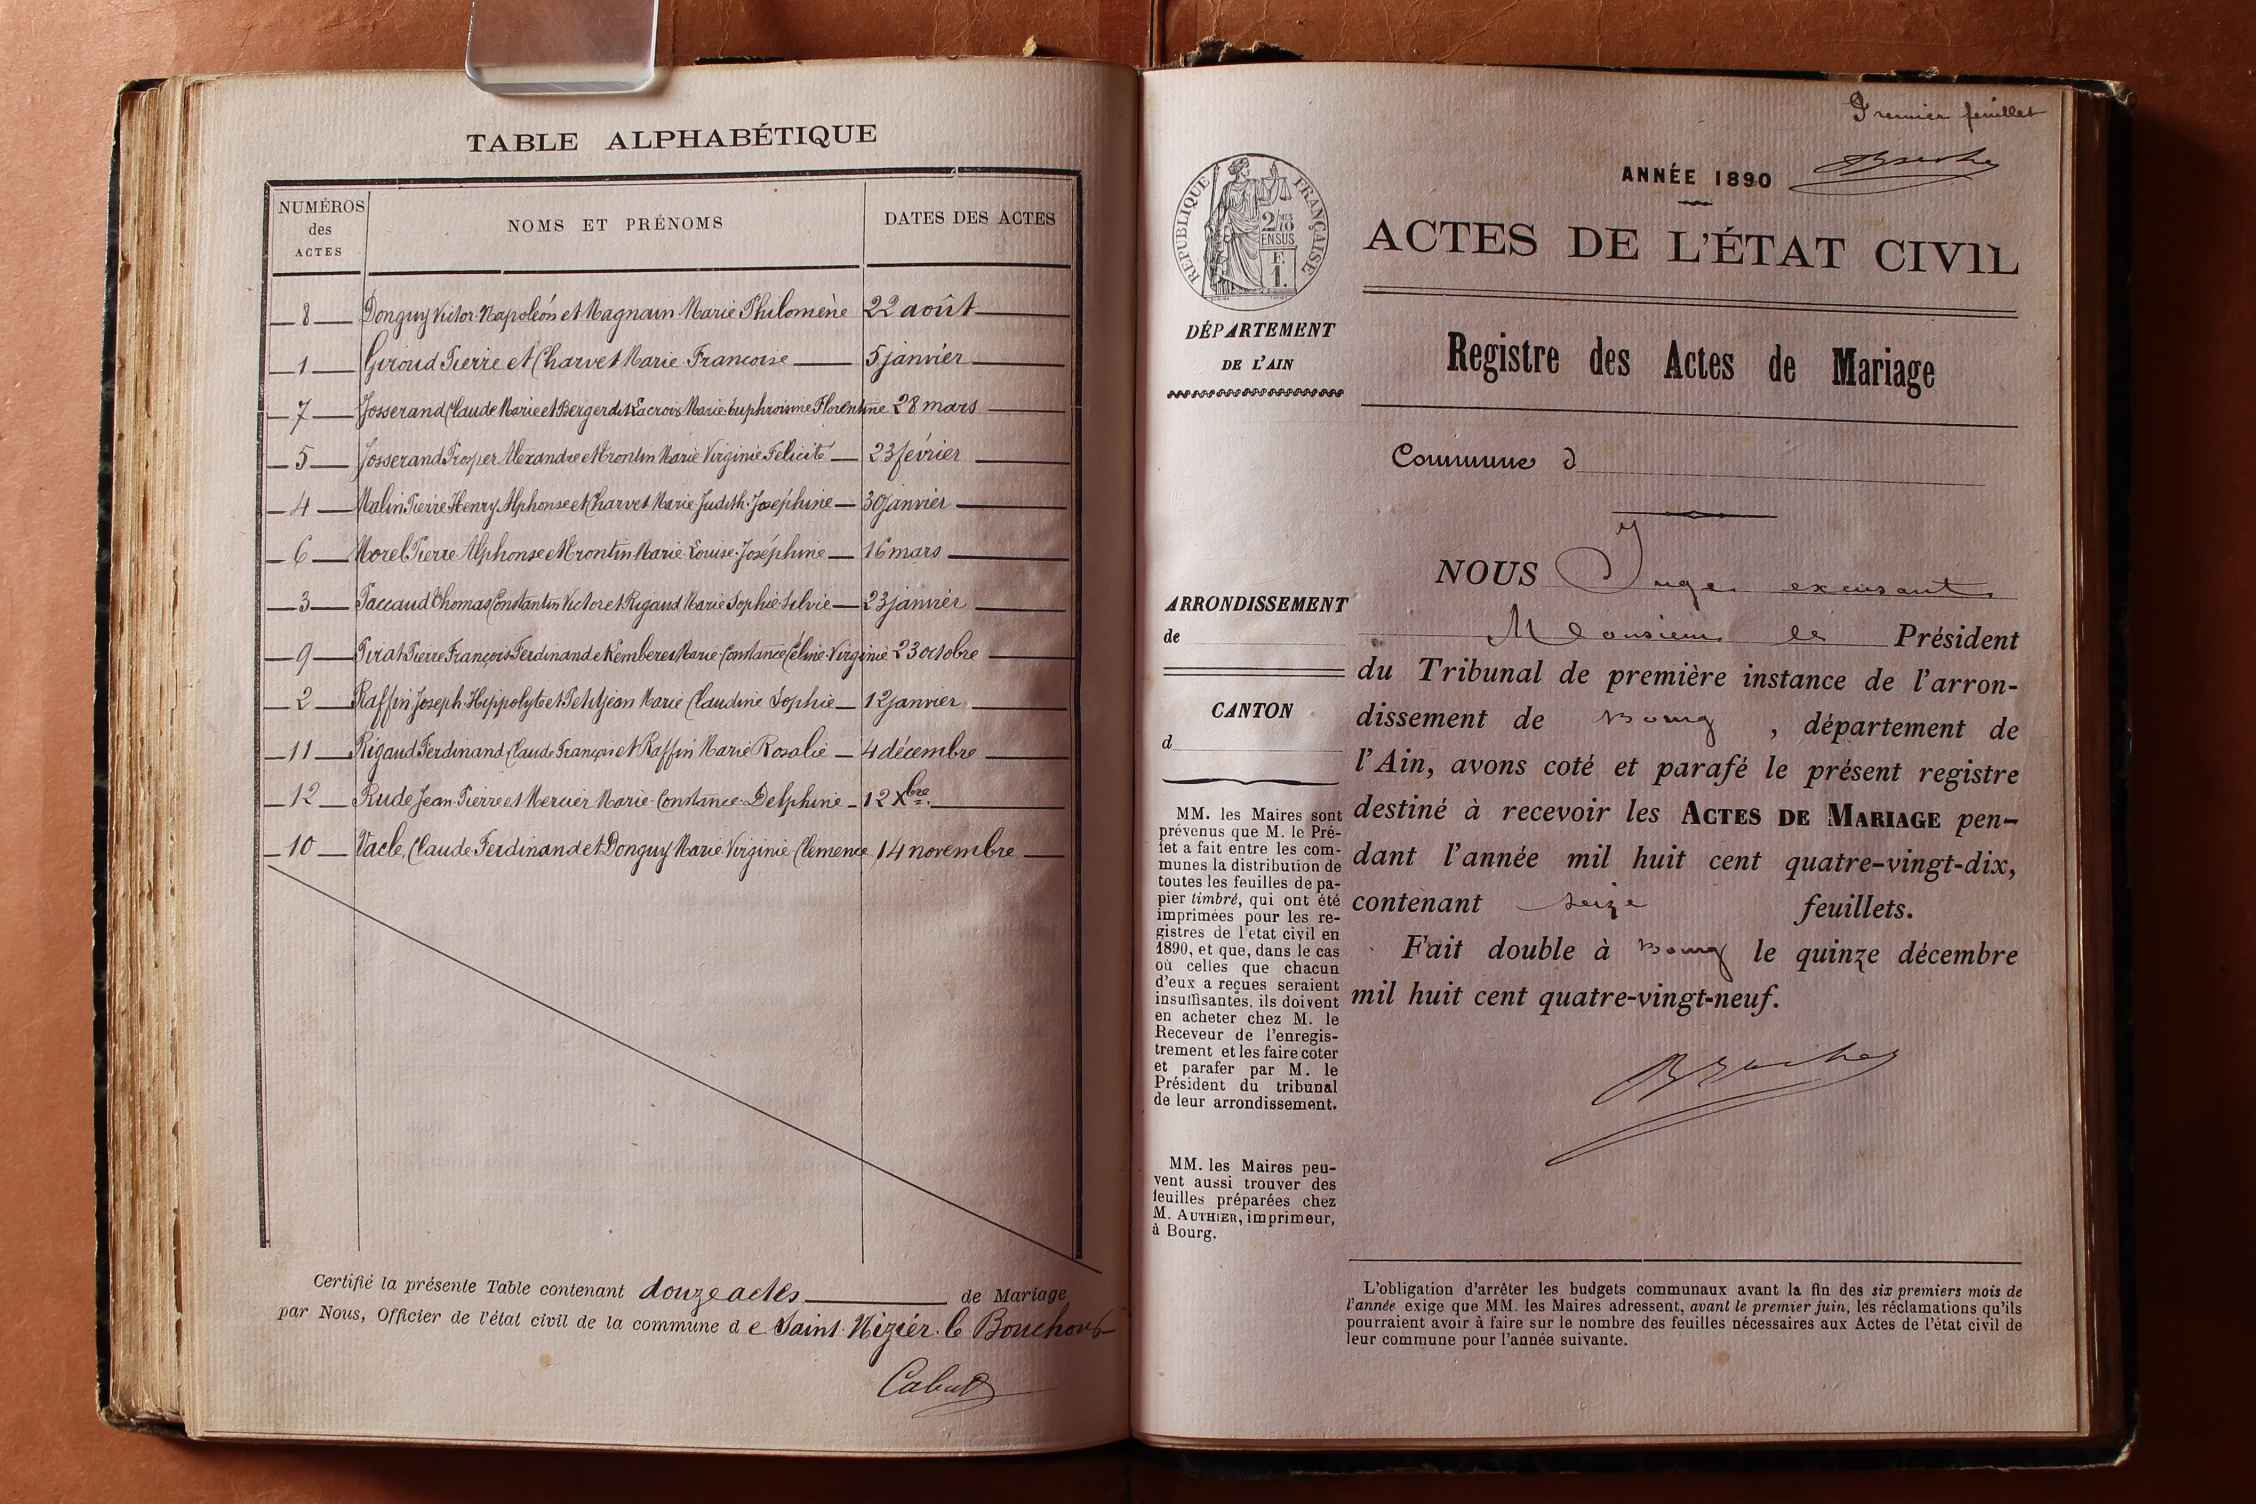 TABLE ALPHABÉTIQUE
NUMÉROS des ACTES NOMS ET PRÉNOMS DATES DES ACTES
8 Donguy Victor Napoléon et Magnain Marie Philomène 22 août
1 Giroud Pierre et Charvet Marie Françoise 5 janvier
7 Josserand Claude Marie et Berger dit Lacroix Marie Euphroisine Florentine 28 mars
5 Josserand Prosper Alexandre et Prontin Marie Virginie Félicité 23 février
4 Malin Pierre Henry Alphonse et Charvet Marie Judith Joséphine 30 janvier
6 Morel Pierre Alphonse et Prontin Marie Louise Joséphine 16 mars
3 Paccaud Thomas Constantin Victor et Rigaud Marie Sophie Silvie 23 janvier
9 Pirat Pierre François Ferdinand et Marie Constance Céline Virginie 23 octobre
2 Raffin Joseph Hippolyte et Petitjean Marie Claudine Sophie 12 janvier
11 Rigaud Ferdinand Claude François et Raffin Marie Rosalie 4 décembre
12 Rude Jean Pierre et Mercier Marie Constance Delphine 12 Xbre.
10 Vacle, Claude Ferdinand et Donguy Marie Virginie Clémence 14 novembre
Certifié la présente Table contenant douze actes de Mariage
par Nous, Officier de l'état civil de la commune d e Saint-Nizier-le Bouchoux
Premier feuillet
ANNÉE 1890
RÉPUBLIQUE FRANÇAISE
ACTES DE L'ÉTAT CIVIL
DÉPARTEMENT
DE L'AIN
Registre des Actes de Mariage
Commune d
NOUS Juge excusant
Monsieur le Président
du Tribunal de première instance de l'arron-
dissement de Bourg, département de
l'Ain, avons coté et parafé le présent registre
destiné à recevoir les ACTES DE MARIAGE pen-
dant l'année mil huit cent quatre-vingt-dix,
contenant seize feuillets.
Fait double à Bourg le quinze décembre
mil huit cent quatre-vingt-neuf.
ARRONDISSEMENT
de
CANTON
d
MM. les Maires sont
prévenus que M. le Pré-
fet a fait entre les com-
munes la distribution de
toutes les feuilles de pa-
pier timbré, qui ont été
imprimées pour les re-
gistres de l'état civil en
1890, et que, dans le cas
où celles que chacun
d'eux a reçues seraient
insuffisantes, ils doivent
en acheter chez M. le
Receveur de l'enregis-
trement et les faire coter
et parafer par M. le
Président du tribunal
de leur arrondissement.
MM. les Maires peu-
vent aussi trouver des
feuilles préparées chez
M. AUTHIER, imprimeur,
à Bourg.
L'obligation d'arrêter les budgets communaux avant la fin des six premiers mois de
l'année exige que MM. les Maires adressent, avant le premier juin, les réclamations qu'ils
pourraient avoir à faire sur le nombre des feuilles nécessaires aux Actes de l'état civil de
leur commune pour l'année suivante.